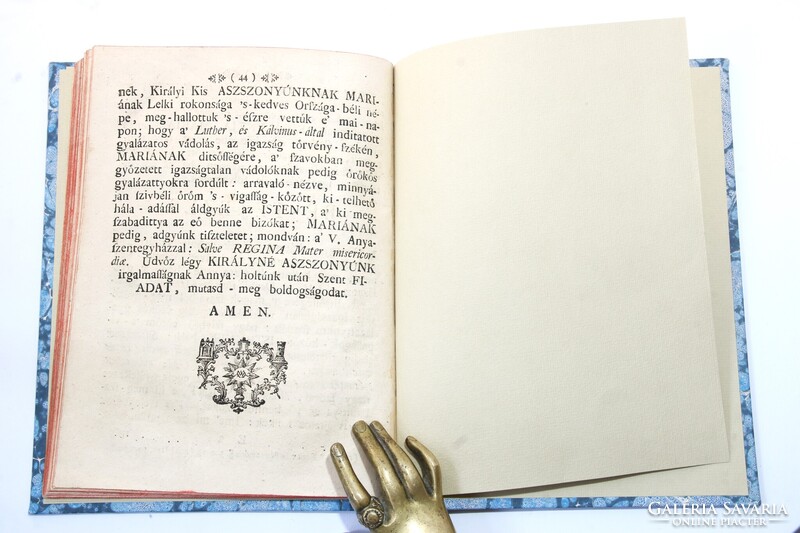 ( 44 )
nek, Királyi Kis ASZSZONYÚNKNAK MARI-
ának Lelki rokonsága 's-kedves Orſzága-béli né-
pe, meg-hallottuk 's-éſzre vettük e' mai-na-
pon; hogy a' Luther, és Kálvinus-által indítatott
gyalázatos vádolás, az igazság törvény-ſzékén,
MARIÁNAK ditsőſſégére, a' szavokban meg-
győzetett igazságtalan vádolóknak pedig örökös
gyalázattyokra fordúlt: arravaló-nézve, minnyá-
jan szivbéli öröm 's-vigaſſág-között, ki-telhető
hála-adáſſal áldgyúk az ISTENT, a' ki meg-
szabadittya az eő benne bizókat; MARIÁNAK
pedig, adgyúnk tiszteletet; mondván: a' V. Anya-
szentegyházzal: Salve REGINA Mater misericor-
diæ. Üdvöz légy KIRÁLYNÉ ASZSZONYÚNK
irgalmaſſágnak Annya: holtúnk után Szent FI-
ADAT, mutasd-meg boldogságodat.
AMEN.
GALERIA SAVARIA
ONLINE PIACTÉR